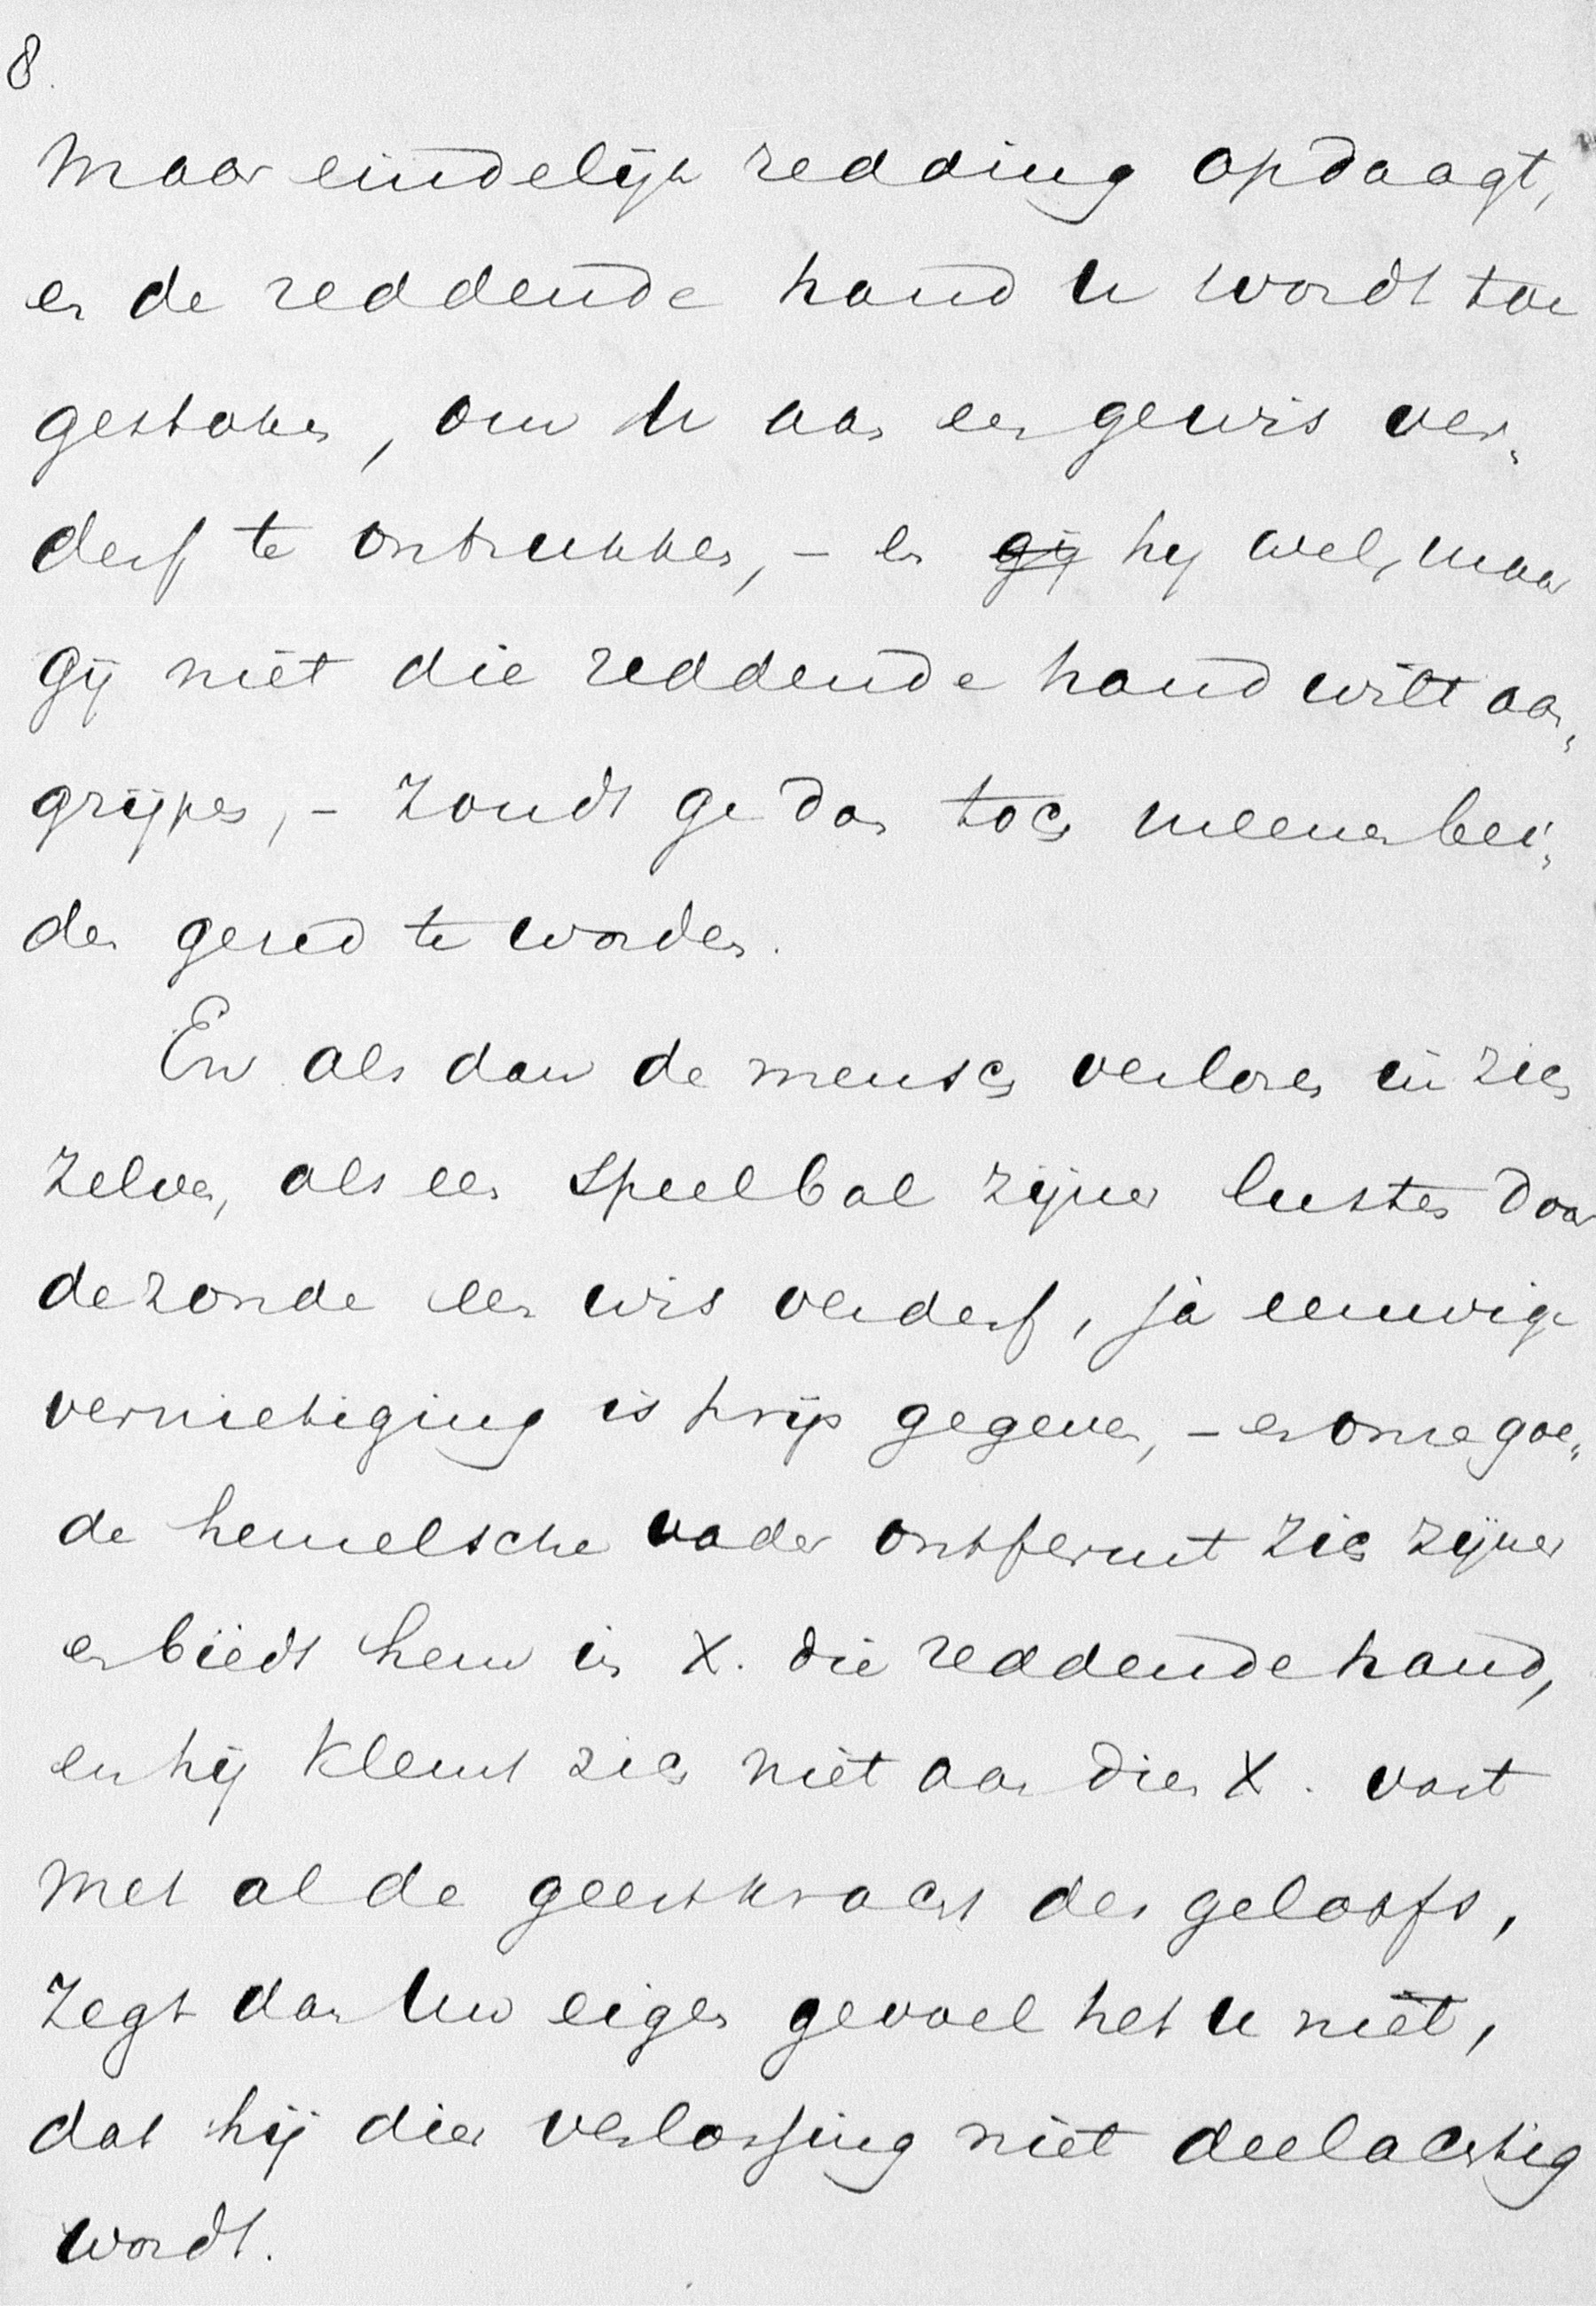 8.
maar eindelijk redding opdaagt,
en de reddende hand U wordt toe
gestoken, om U aan een gewis ver„
derf te ontrukken, – en gij hij wel, maar
gij niet die reddende hand wilt aan„
grijpen, – zoudt ge dan toch meenen bei„
den gered te worden.
En als dan de mensch verloren in zich
zelven, als een speelbal zijner lusten door
de zonde een wis verderf, ja eeuwige
vernietiging is prijs gegeven, – en onze goe„
de hemelsche vader ontfermt zich zijner
en biedt hem in X. die reddende hand,
en hij klemt zich niet aan dien X. vast
met al de geestkracht des geloofs,
zegt dan Uw eigen gevoel het U niet,
dat hij dier verlossing niet deelachtig
wordt.